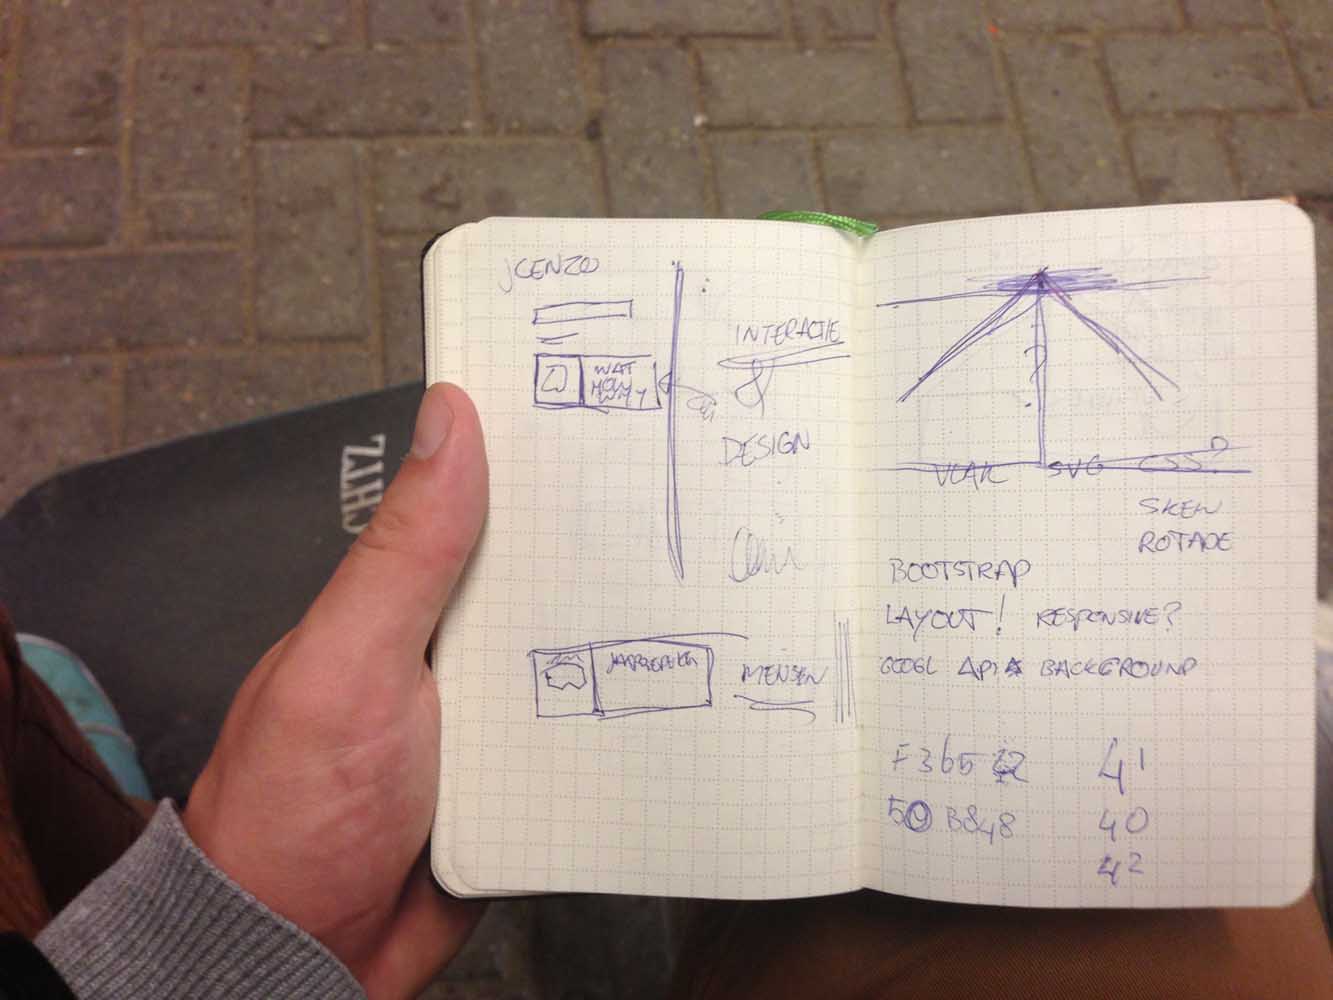 JCENZO
WAT
INTERACTIE
&
DESIGN
MENSEN
VLAK SVG CSS?
SKEW
ROTADE
BOOTSTRAP
LAYOUT! RESPONSIVE?
GOOGL API BACKGROUND
F365
50 B848
41
40
42